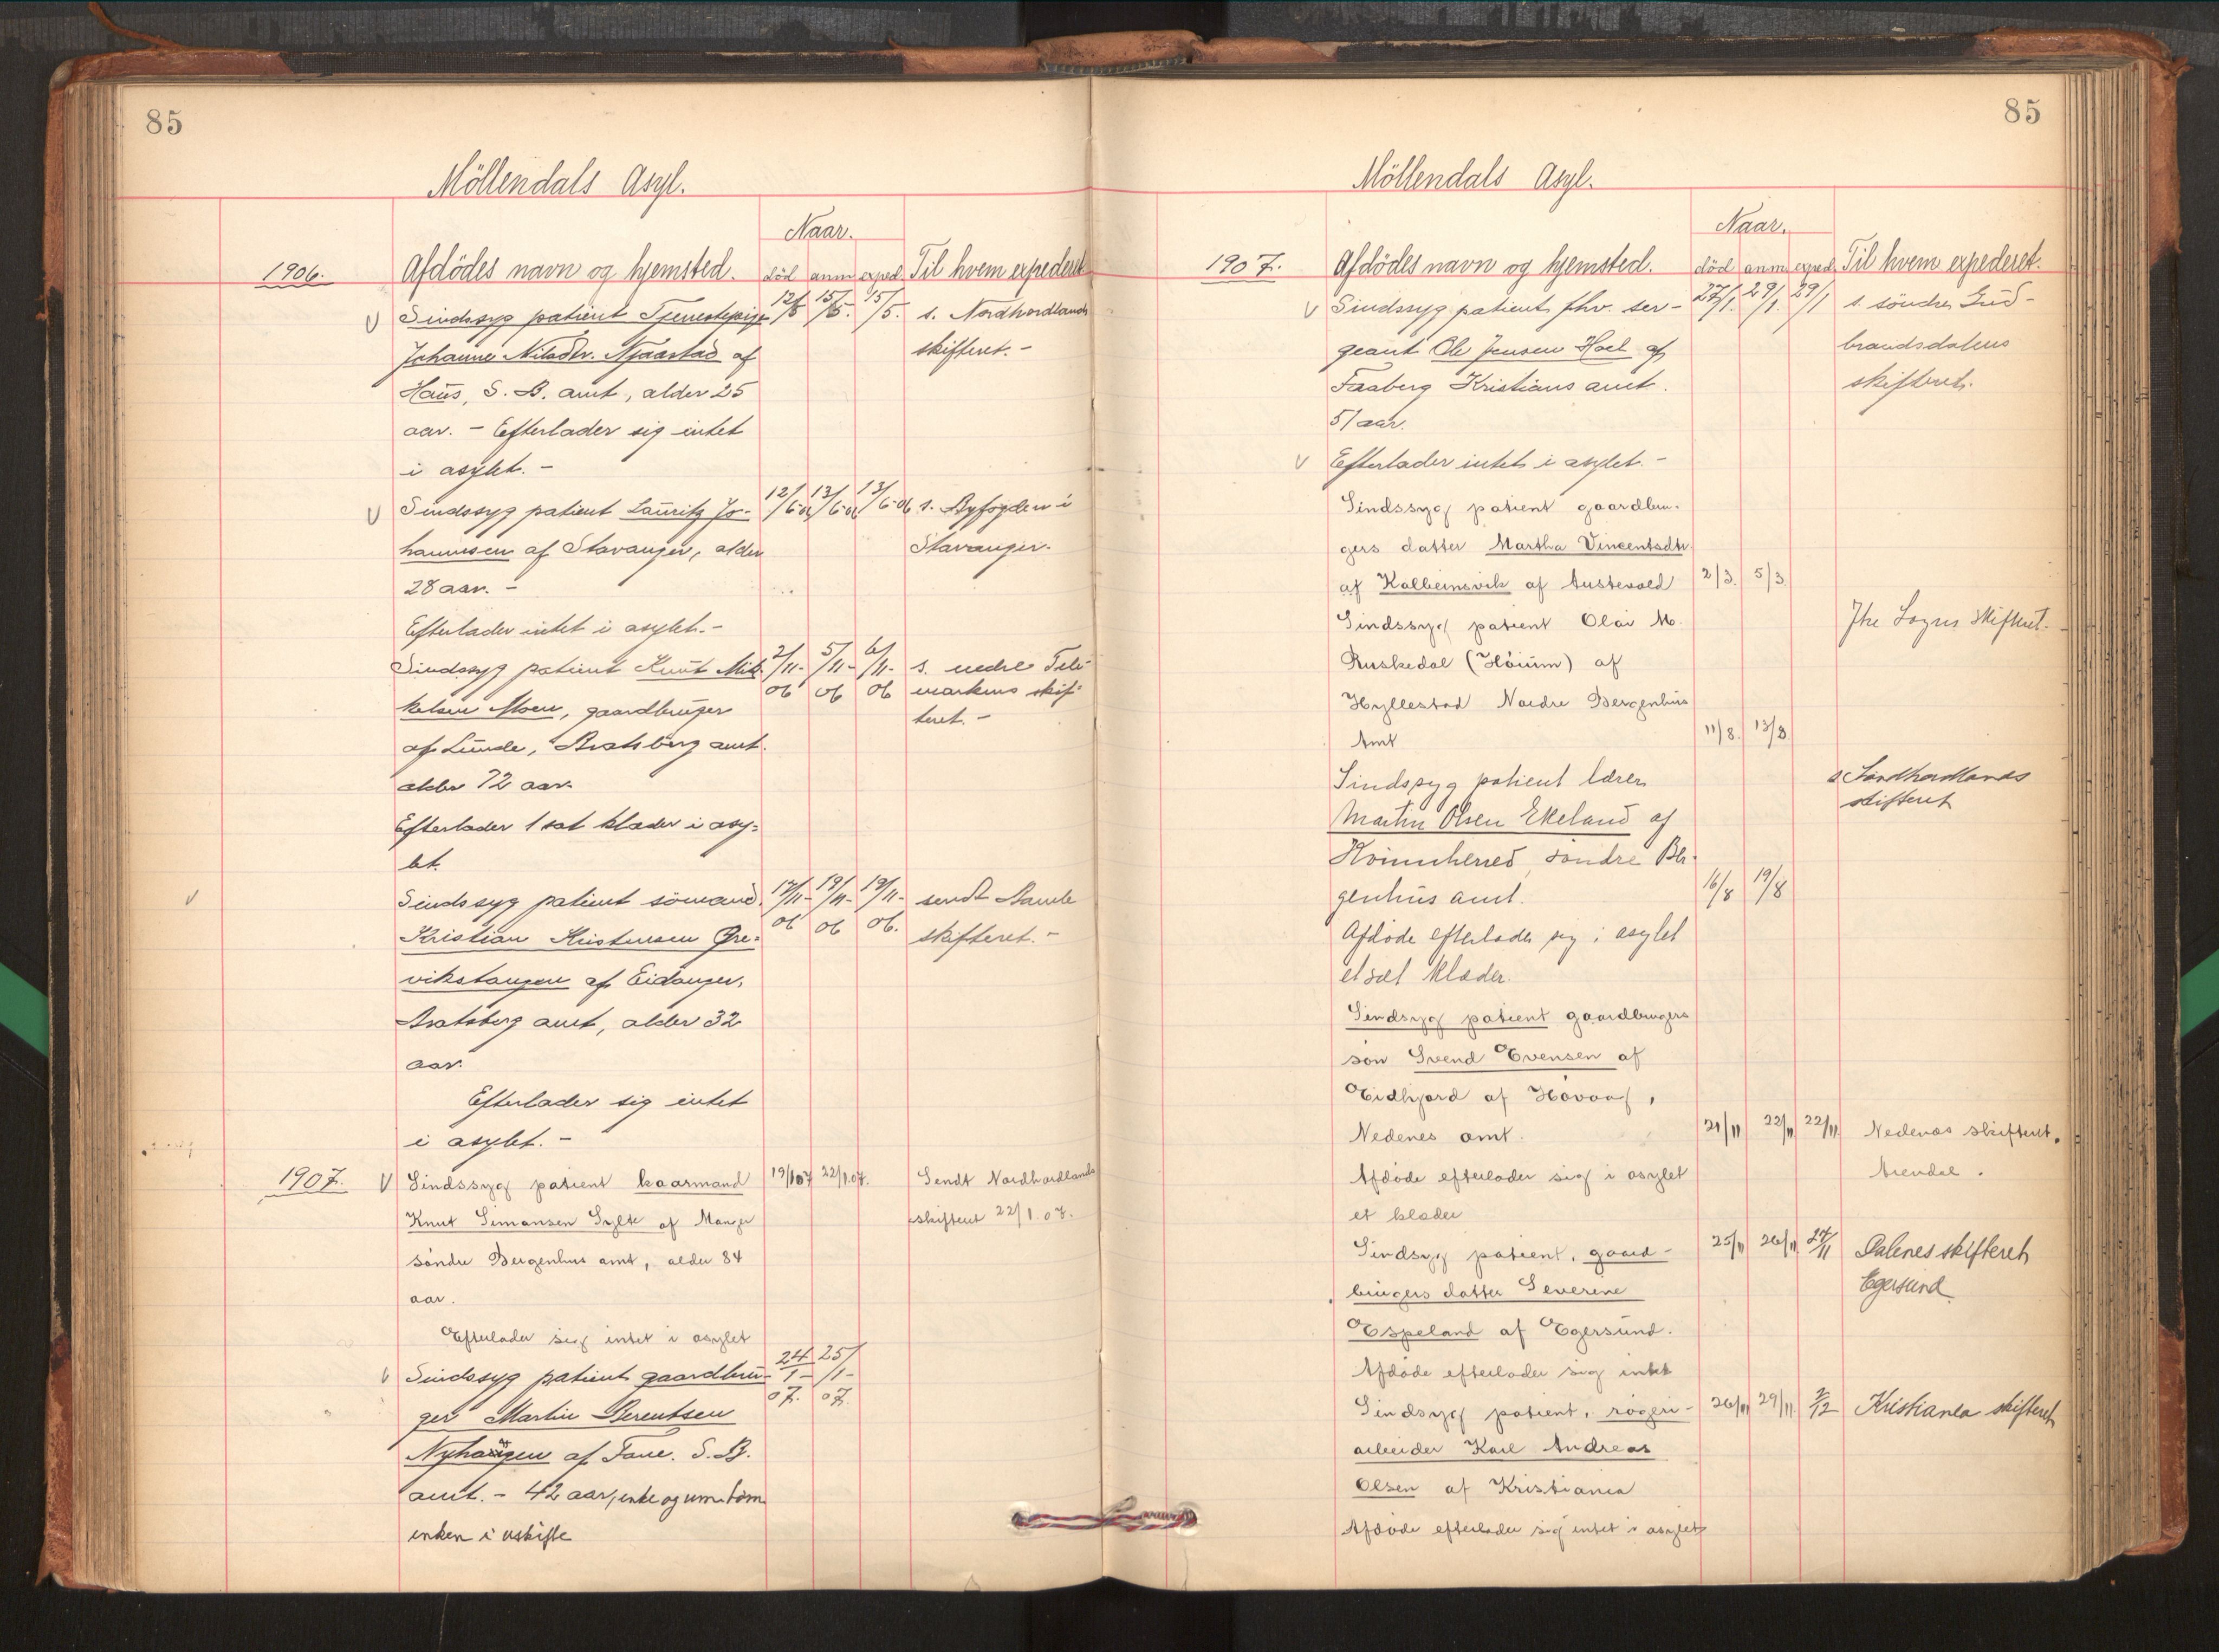 85
Möllendals Asyl.
Naar.
1906. Afdödes navn og hjemsted. död anm exped. Til hvem expederet
V Sindssyg patient Tjenestepige 12/5 15/5. 15/5. s. Nordhordlands
Johanne Nilsdr. Njaastad af skifteret. -
Haus, S. B. amt, alder 25
aar. - Efterlader sig intet
i asylet. -
V Sindssyg patient Lauritz Jo- 12/6-06 13/6-06 13/6-06 s. Byfogden i
hannesen af Stavanger, alder Stavanger.
28 aar. -
Efterlader intet i asylet. -
Sindssyg patient Knut Mik- 2/11- 5/11- 6/11- s. nedre Tele-
kelsen Moen, gaardbruger 06 06 06 markens skif-
af Lunde, Bratsberg amt. teret. -
alder 72 aar.
Efterlader 1 sat klæder i asy-
let.
V Sindssyg patient sömand 17/11- 19/11- 19/11- sendt Bamle
Kristian Kristensen Öre- 06 06 06. skifteret. -
vikstangen af Eidanger,
Bratsberg amt, alder 32
aar.
Efterlader sig intet
i asylet. -
1907. V Sindssyg patient kaarmand 19/1 07 22/1.07. Sendt Nordhordlands
Knut Simonsen Sylte af Manger skifteret 22/1.07.
söndre Bergenhus amt, alder 84
aar.
Efterlader sig intet i asylet
V Sindssyg patient gaardbru- 24/1- 25/1-
ger Martin Berentsen 07. 07.
Nyhaugen af Fane. S. B.
amt. - 42 aar, enke og umn. börn
enken i uskifte
85
Möllendals Asyl.
Naar.
1907. Afdödes navn og hjemsted. död anm. exped. Til hvem expederet.
V Sindssyg patient fhv. ser- 27/1. 29/1. 29/1 s. söndre Gud-
geant Ole Jensen Hoel af brandsdalens
Faaberg Kristians amt. skifteret.
51 aar.
V Efterlader intet i asylet. -
Sindssyg patient gaardbru-
gers datter Martha Vincentsdtr
af Kalbeinsvik af Austevold 2/3. 5/3
Sindssyg patient Olai M. Ytre Sogns skifteret.
Ruskedal (Höium) af
Hyllestad Nordre Bergenhus
Amt 11/8. 13/8
Sindssyg patient lærer s. Söndhordlands
Martin Olsen Ekeland af skifteret
Kvinnherred, söndre Ber-
genhus amt. 16/8 19/8
Afdöde efterlader sig i asylet
et sæt klæder.
Sindsyg patient gaardbrugers
sön Svend Evensen af
Eidhjord af Hövaag,
Nedenes amt. 21/11 22/11 22/11 Nedenes skifteret.
Afdöde efterlader sig i asylet Arendal.
et klæder
Sindsyg patient, gaard- 25/11 26/11 27/11 Dalenes skifteret
brugers datter Severine Egersund
Espeland af Egersund.
Afdöde efterlader sig intet
Sindsyg patient, rögeri- 26/11 29/11 2/12 Kristiania skifteret
arbeider Karl Andreas
Olsen af Kristiania
Afdöde efterlader sig intet i asylet